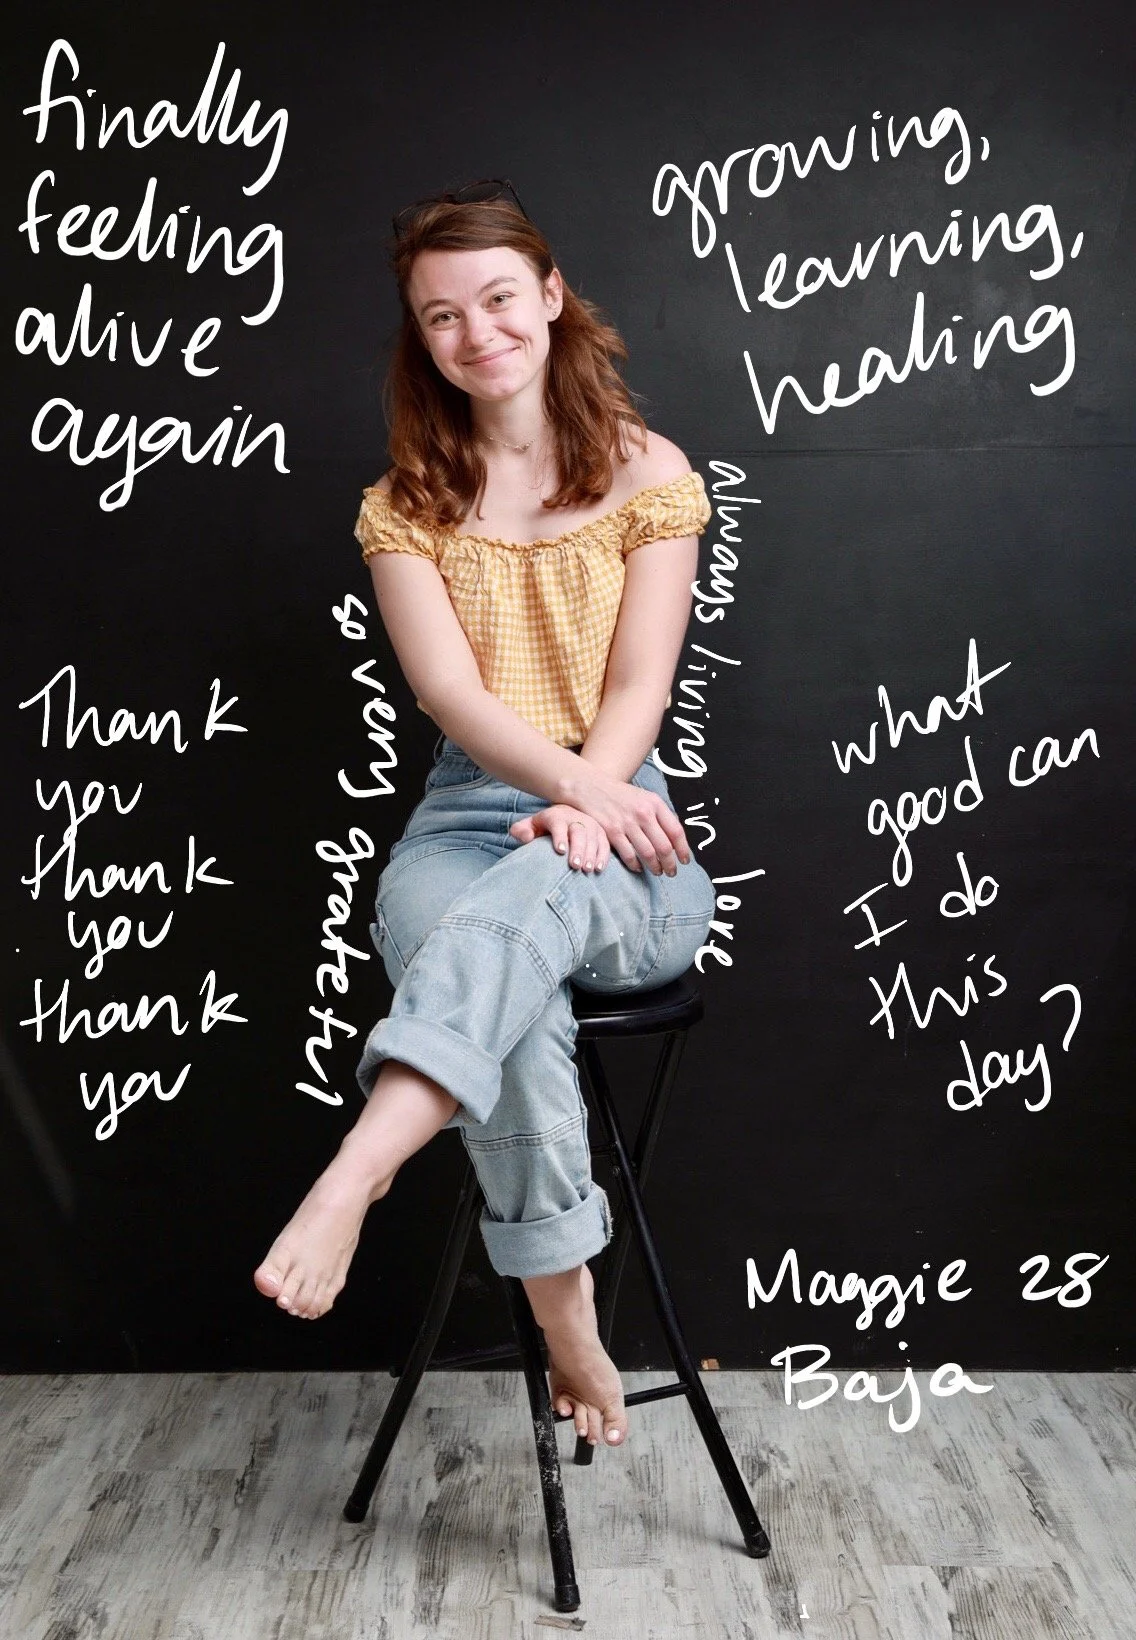 finally
feeling
alive
again
growing,
learning,
healing
always living in love
so very grateful
Thank
you
thank
you
thank
you
what
good can
I do
this
day?
Maggie 28
Baja